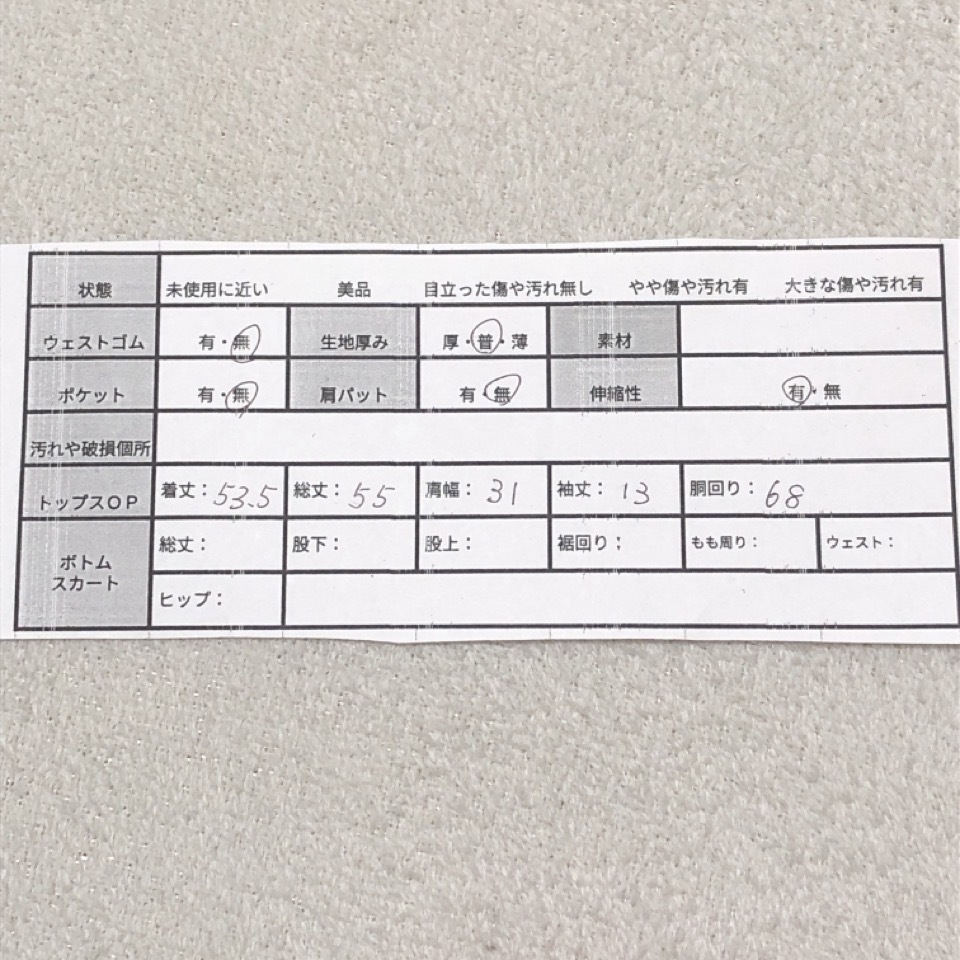 状態 未使用に近い 美品 目立った傷や汚れ無し やや傷や汚れ有 大きな傷や汚れ有
ウェストゴム 有・無 生地厚み 厚・普・薄 素材
ポケット 有・無 肩パット 有・無 伸縮性 有・無
汚れや破損個所
トップスOP 着丈：53.5 総丈：55 肩幅：31 袖丈：13 胴回り：68
ボトム
スカート
総丈： 股下： 股上： 裾回り； もも周り： ウェスト：
ヒップ：